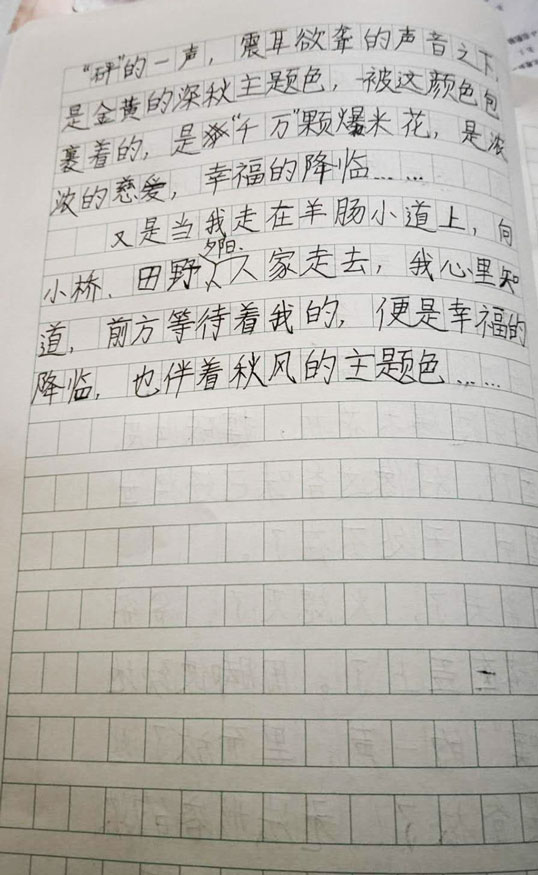 “砰”的一声，震耳欲聋的声音之下，
是金黄的深秋主题色，被这颜色包
裹着的，是“千万”颗爆米花，是浓
浓的慈爱，幸福的降临……
又是当我走在羊肠小道上，向
小桥、田野、夕阳、人家走去，我心里知
道，前方等待着我的，便是幸福的
降临，也伴着秋风的主题色……